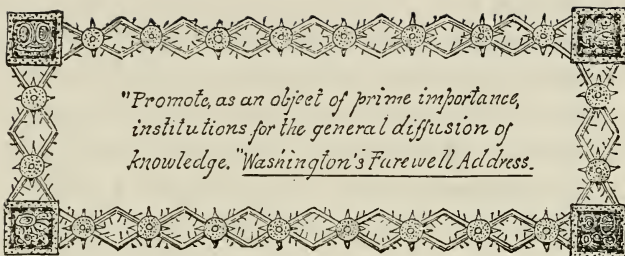 "Promote, as an object of prime importance,
institutions for the general diffusion of
knowledge." Washington's Farewell Address.